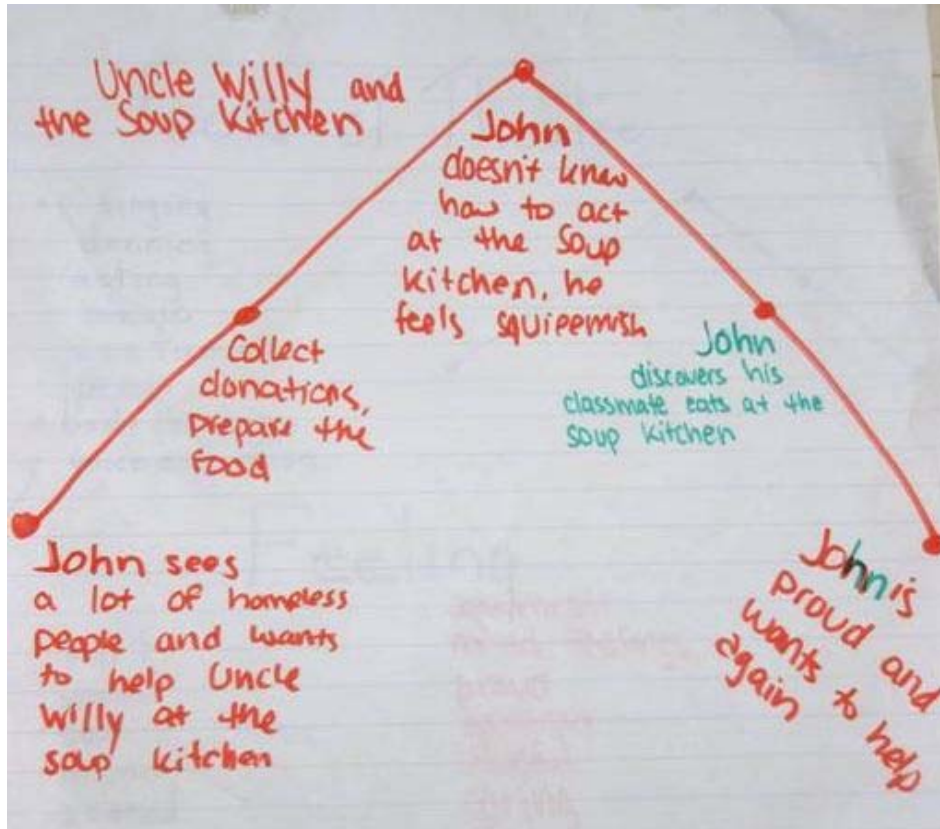 Uncle Willy and
the Soup Kitchen
John
doesn't know
how to act
at the Soup
Kitchen, he
feels squieemish
Collect
donations,
prepare the
food
John
discovers his
classmate eats at the
soup kitchen
John sees
a lot of homeless
people and wants
to help Uncle
Willy at the
soup kitchen
John is
proud and
wants to help
again